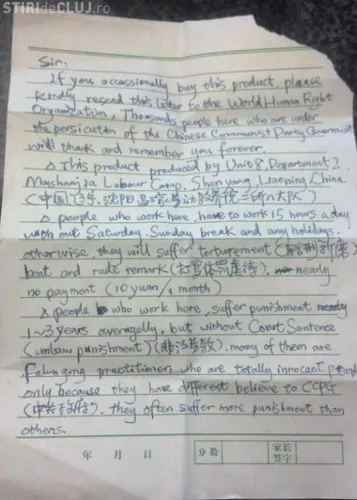 STIRIdeCLUJ.ro
Sir:
If you occassionally buy this product, please
kindly resend this letter to the World Human Right
Organization. Thousands people here who are under
the persicution of the Chinese Communist Party Government
will thank and remember you forever.
This product produced by Unit 8, Department 2,
Mashanjia Labour Camp, Shenyang, Liaoning, China
people who work here, have to work 15 hours a day
with out Saturday, Sunday break and any holidays.
otherwise, they will suffer torturement
beat and rude remark nearly
no payment (10 yuan/1 month)
people who work here, suffer punishment
1~3 years averagelly, but without Court Sentence
(unlaw punishment) (非法劳教). many of them are
Falungong practitioner, who are totally innocent people
only because they have different believe to CCPG
they often suffer more punishment than
others.
年 月 日
分数 家长签字